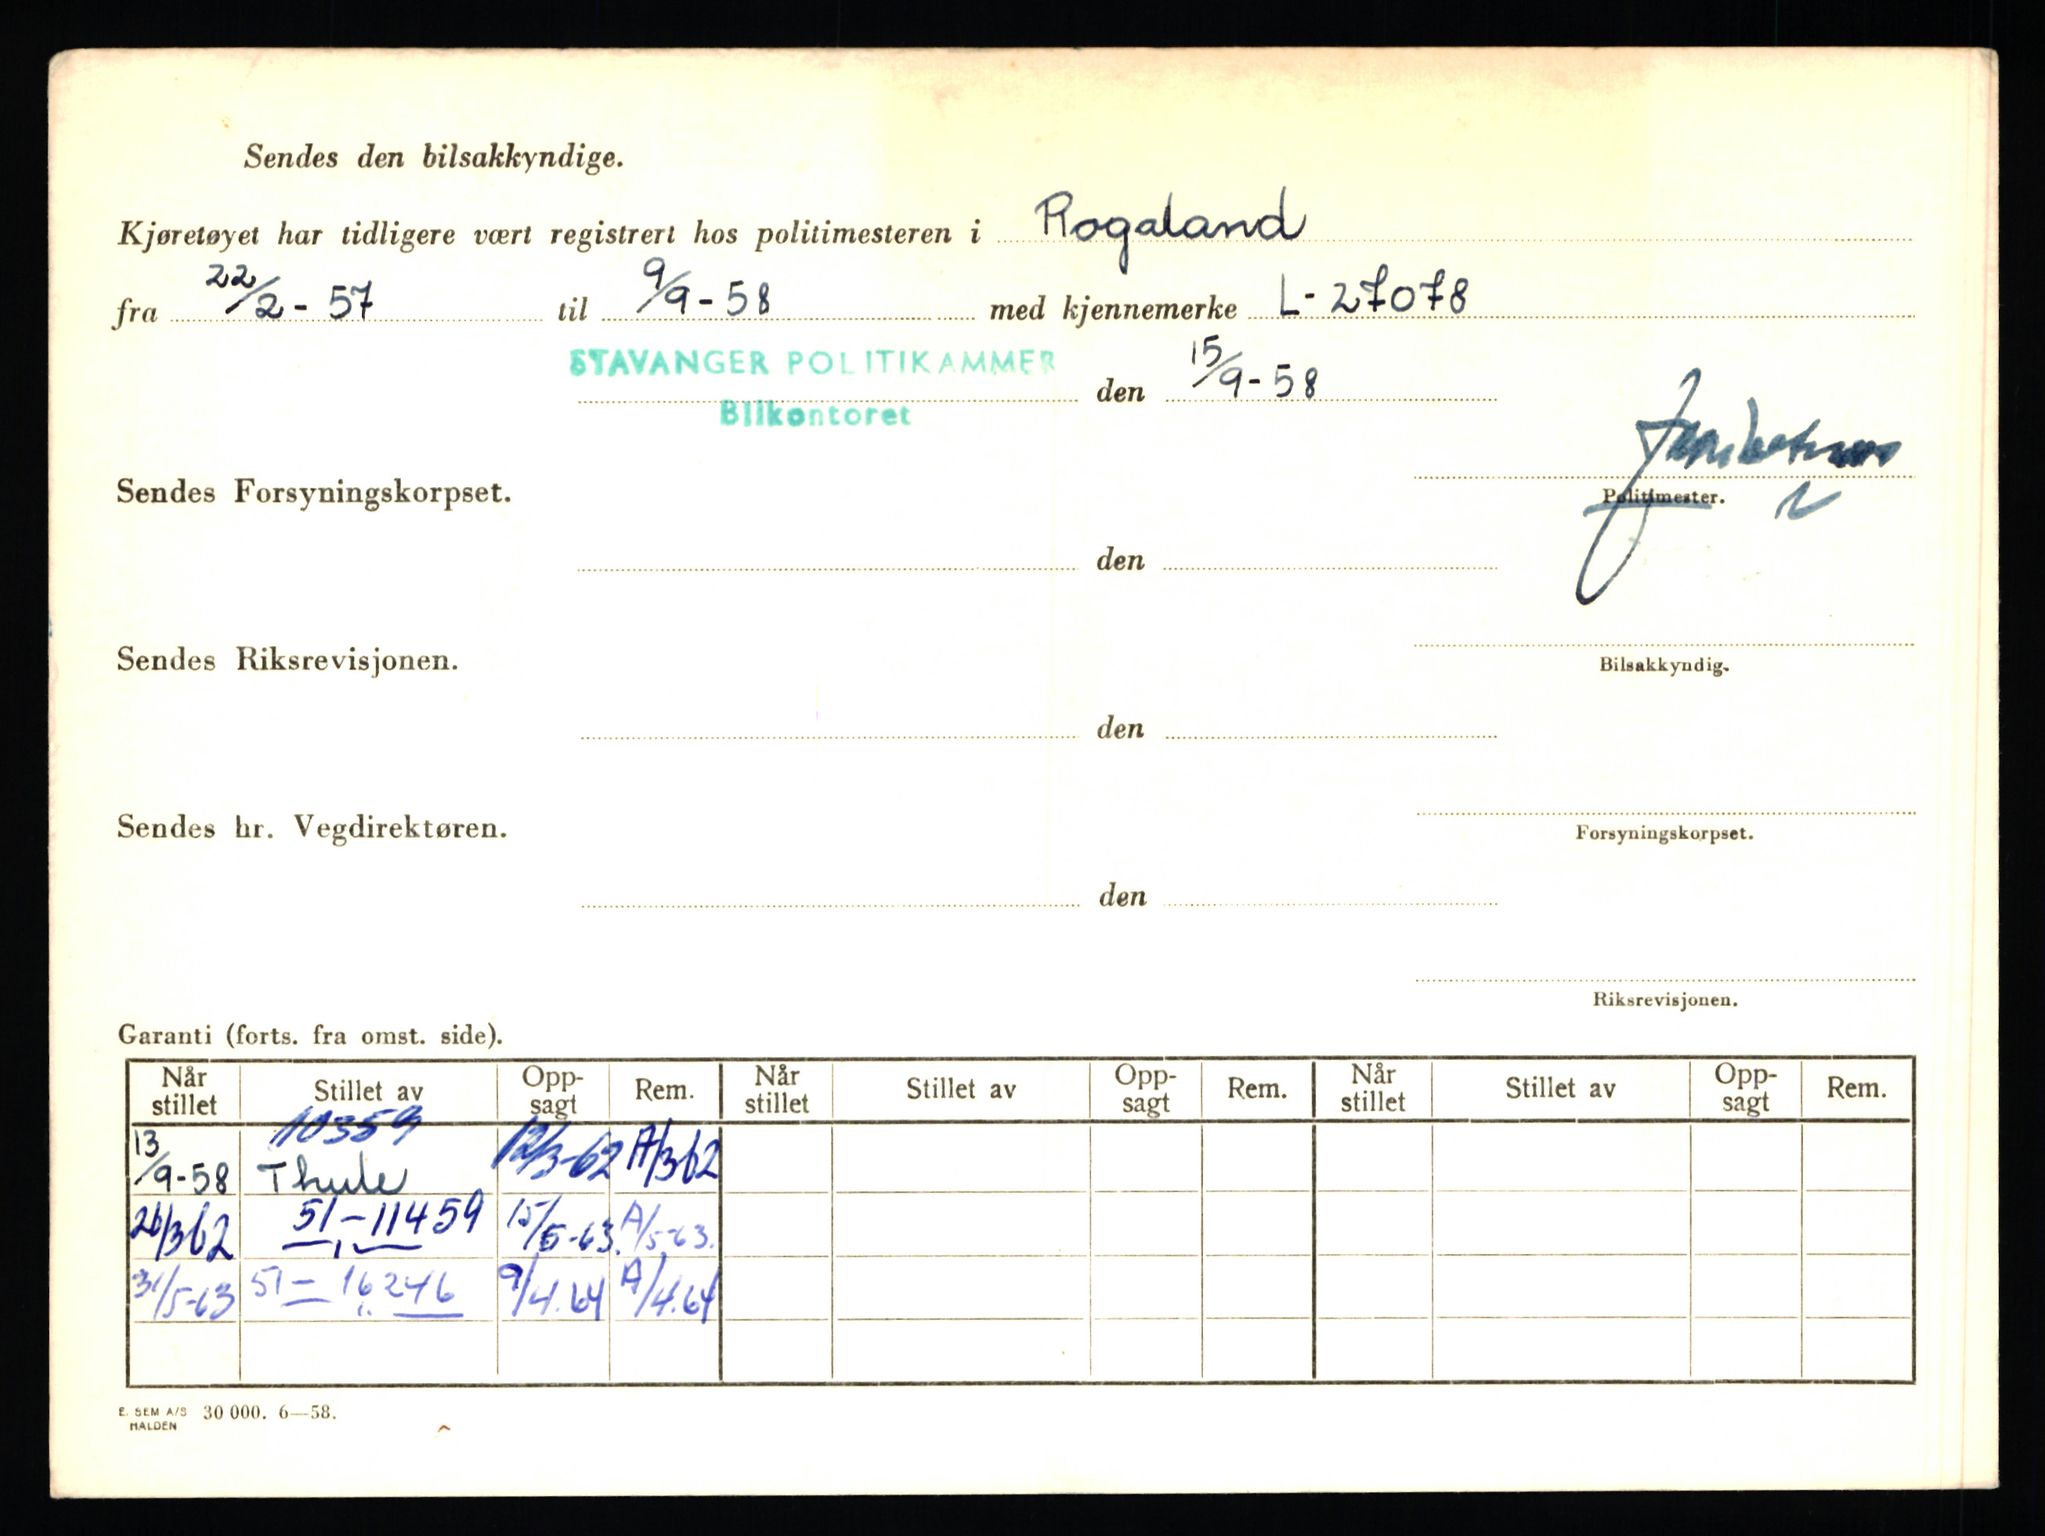 Sendes den bilsakkyndige.
Kjøretøyet har tidligere vært registrert hos politimesteren i Rogaland
fra 22/2 - 57 til 9/9 - 58 med kjennemerke L - 27078
STAVANGER POLITIKAMMER den 15/9 - 58
Bilkontoret
Sendes Forsyningskorpset.
Politimester.
den
Sendes Riksrevisjonen.
Bilsakkyndig.
den
Sendes hr. Vegdirektøren.
Forsyningskorpset.
den
Riksrevisjonen.
Garanti (forts. fra omst. side).
Når stillet Stillet av Opp-sagt Rem. Når stillet Stillet av Opp-sagt Rem. Når stillet Stillet av Opp-sagt Rem.
10359
13/9-58 Thule 12/3-62 A/362
26/362 51-11459 15/5-63. A/5-63.
31/5-63 51-16246 9/4.64 A/4.64
E. SEM A/S 30 000. 6—58.
HALDEN